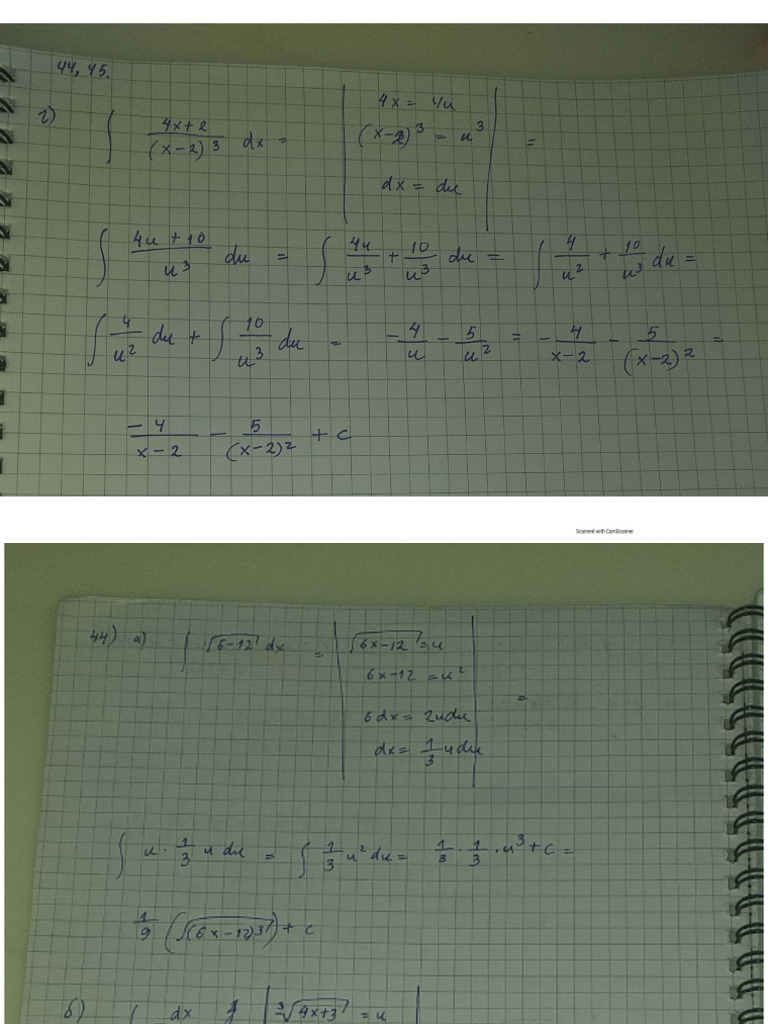 44, 45.
г) ∫ (4x+2)/(x-2)^3 dx = | 4x = 4u
(x-2)^3 = u^3 | =
dx = du
∫ (4u+10)/u^3 du = ∫ 4u/u^3 + 10/u^3 du = ∫ 4/u^2 + 10/u^3 du =
∫ 4/u^2 du + ∫ 10/u^3 du = -4/u - 5/u^2 = -4/(x-2) - 5/(x-2)^2 =
-4/(x-2) - 5/(x-2)^2 + c
Scanned with CamScanner
44) а) ∫ √(6-12) dx = | √(6x-12) = u
6x-12 = u^2
6dx = 2udu | =
dx = 1/3 udu
∫ u · 1/3 u du = ∫ 1/3 u^2 du = 1/3 · 1/3 · u^3 + c =
1/9 (√(6x-12)^3) + c
б) ∫ dx | ∛(4x+3) = u |